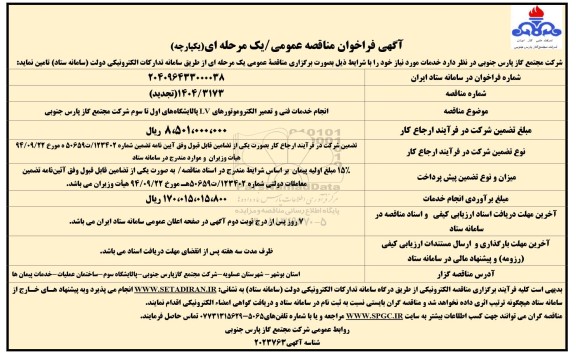 آگهی فراخوان مناقصه عمومی/یک مرحله ای(یکپارچه)
شرکت مجتمع گاز پارس جنوبی در نظر دارد خدمات مورد نیاز خود را با شرایط ذیل بصورت برگزاری مناقصۀ عمومی یک مرحله ای از طریق سامانه تدارکات الکترونیکی دولت (سامانه ستاد) تامین نماید:
شماره فراخوان در سامانه ستاد ایران
۲۰۴۰۹۶۴۳۳۰۰۰۰۳۸
شماره مناقصه
۱۴۰۴/۳۱۷۳(تجدید)
موضوع مناقصه
انجام خدمات فنی و تعمیر الکتروموتورهای LV پالایشگاه‌های اول تا سوم شرکت مجتمع گاز پارس جنوبی
مبلغ تضمین شرکت در فرآیند ارجاع کار
۸،۵۰۱،۰۰۰،۰۰۰ ریال
نوع تضمین شرکت در فرآیند ارجاع کار
تضمین شرکت در فرآیند ارجاع کار بصورت یکی از تضامین قابل قبول وفق آیین نامه تضمین شماره ۱۲۳۴۰۲/ت۵۰۶۵۹ه مورخ ۹۴/۰۹/۲۲
هیأت وزیران و موارد مندرج در سامانه ستاد
میزان و نوع تضمین پیش پرداخت
۱۵٪ مبلغ اولیه پیمان بر اساس شرایط مندرج در اسناد مناقصه/ به صورت یکی از تضامین قابل قبول وفق آئین‌نامه تضمین
معاملات دولتی شماره ۱۲۳۴۰۲/ت۵۰۶۵۹هـ مورخ ۹۴/۰۹/۲۲ هیأت وزیران می باشد.
مبلغ برآوردی انجام خدمات
۱۷۰،۰۱۵،۰۱۵،۸۰۰ ریال
آخرین مهلت دریافت اسناد ارزیابی کیفی و اسناد مناقصه در
سامانه ستاد
۷ روز پس از درج نوبت دوم آگهی در صفحه اعلان عمومی سامانه ستاد ایران می باشد.
آخرین مهلت بارگذاری و ارسال مستندات ارزیابی کیفی
(رزومه) و پیشنهاد مالی در سامانه ستاد
ظرف مدت سه هفته پس از انقضای مهلت دریافت اسناد می باشد.
آدرس مناقصه گزار
استان بوشهر- شهرستان عسلویه-شرکت مجتمع گازپارس جنوبی-پالایشگاه سوم-ساختمان عملیات-خدمات پیمان ها
بدیهی است کلیه فرآیند برگزاری مناقصه الکترونیکی از طریق درگاه سامانه تدارکات الکترونیکی دولت (سامانه ستاد) به نشانی: WWW.SETADIRAN.IR انجام می پذیرد وبه پیشنهاد های خارج از
سامانه ستاد هیچگونه ترتیب اثری داده نخواهد شد و مناقصه گران بایستی نسبت به ثبت نام در سامانه ستاد و دریافت گواهی امضاء الکترونیکی اقدام نمایند.
مناقصه گران می توانند جهت کسب اطلاعات بیشتر به سایت WWW.SPGC.IR مراجعه و یا با شماره تلفن‌های۵۰۶۵-۰۷۷۳۱۳۱۵۶۲۹ تماس حاصل فرمایند.
روابط عمومی شرکت مجتمع گاز پارس جنوبی
شناسه آگهی۲۰۲۳۷۶۳